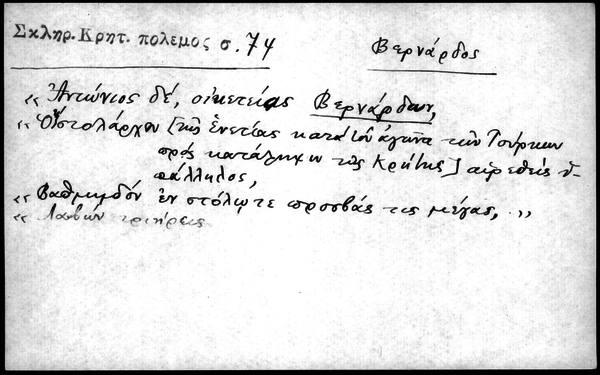 Σκληρ. Κρητ. πόλεμος σ. 74
Βερνάρδος
« Ἀντώνιος δέ, οἰκετείας Βερνάρδων,
« Ὁ στολάρχου [τῆς Ἑνετίας κατὰ τὸν ἀγῶνα τῶν Τούρκων
πρὸς κατάληψιν τῆς Κρήτης] αἱρεθεὶς ὑ-
πάλληλος,
« Βαθμηδὸν ἐν στόλῳ τε προσβάς τις μέγας, »
« Λαβὼν τριήρεις